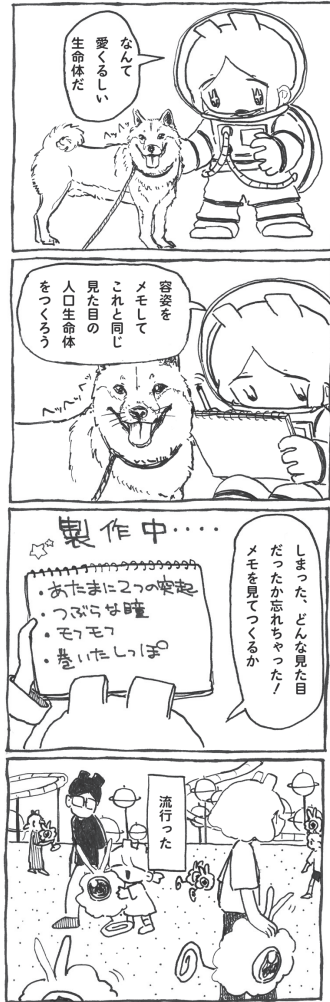 なんて
愛くるしい
生命体だ
容姿を
メモして
これと同じ
見た目の
人口生命体
をつくろう
製作中・・・・
しまった、どんな見た目
だったか忘れちゃった！
メモを見てつくるか
・あたまに2つの突起
・つぶらな瞳
・モフモフ
・巻いたしっぽ
流行った